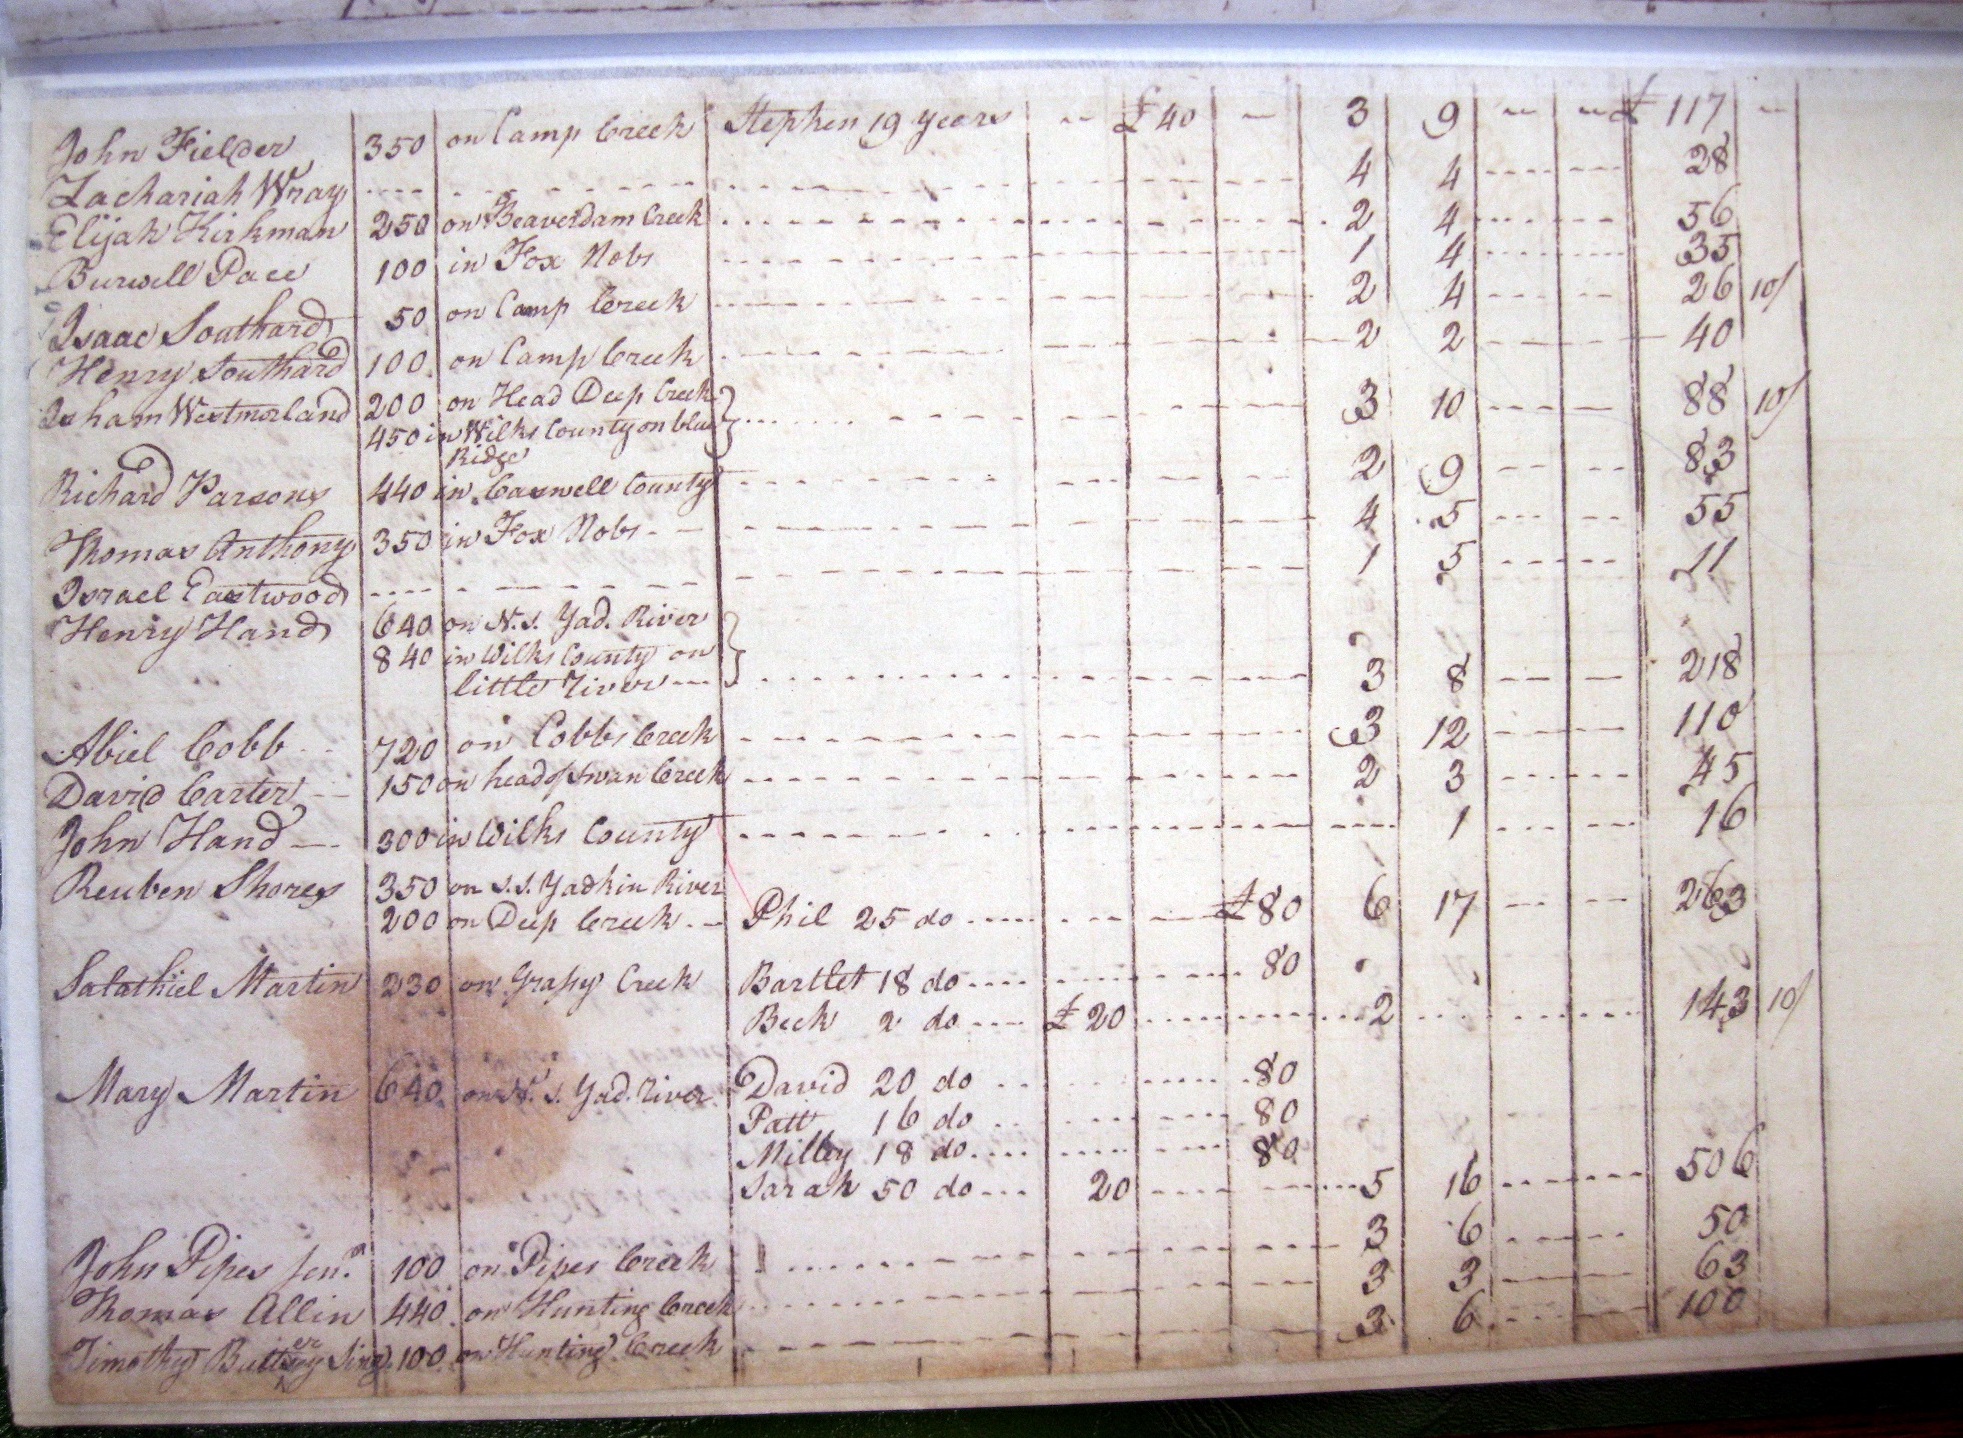 John Fielder 350 on Camp Creek Stephen 19 years " £40 " 3 9 " " £ 117 "
Zachariah Wray 4 4 28
Elijah Kirkman 250 on Beaverdam Creek 2 4 56
Burwell Pace 100 in Fox Nobs 1 4 35
Isaac Southard 50 on Camp Creek 2 4 26 10/
Henry Southard 100 on Camp Creek 2 2 40
Isham Westmorland 200 on Head Deep Creek 3 10 88 10/
450 in Wilks County on blue
Ridge
Richard Parsons 440 in Caswell County 2 9 83
Thomas Anthony 350 in Fox Nobs 4 5 55
Israel Eastwood 1 5 11
Henry Hand 640 on N. S. Yad. River
840 in Wilks County on
little River 3 8 218
Abiel Cobb 720 on Cobbs Creek 3 12 110
David Carter 150 on head of Swan Creek 2 3 45
John Hand 300 in Wilks County 1 16
Reuben Shores 350 on S. S. Yadkin River
200 on Deep Creek Phil 25 do £80 6 17 263
Salathiel Martin 230 on Grassy Creek Bartlet 18 do 80
Beck 2 do £20 2 143 10/
Mary Martin 640 on N. S. Yad. River David 20 do 80
Patt 16 do 80
Milley 18 do 80
Sarah 50 do 20 5 16 506
John Pipes Senr. 100 on Pipes Creek 3 6 50
Thomas Allin 440 on Hunting Creek 3 3 63
Timothy 100 on Hunting Creek 3 6 100